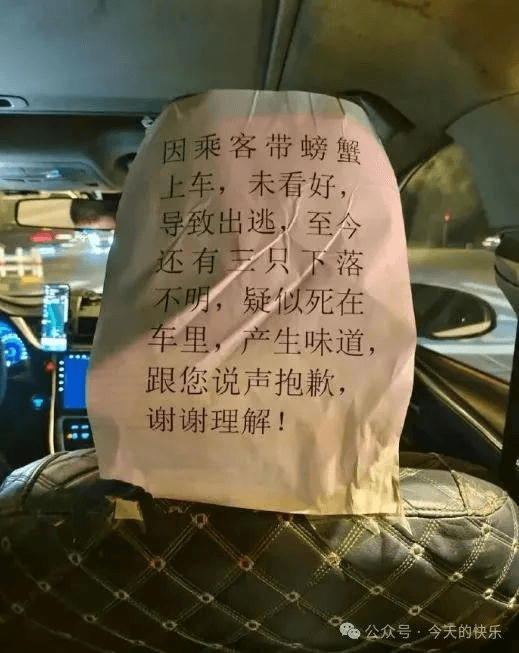 因乘客带螃蟹
上车，未看好，
导致出逃，至今
还有三只下落
不明，疑似死在
车里，产生味道，
跟您说声抱歉，
谢谢理解！
公众号·今天的快乐